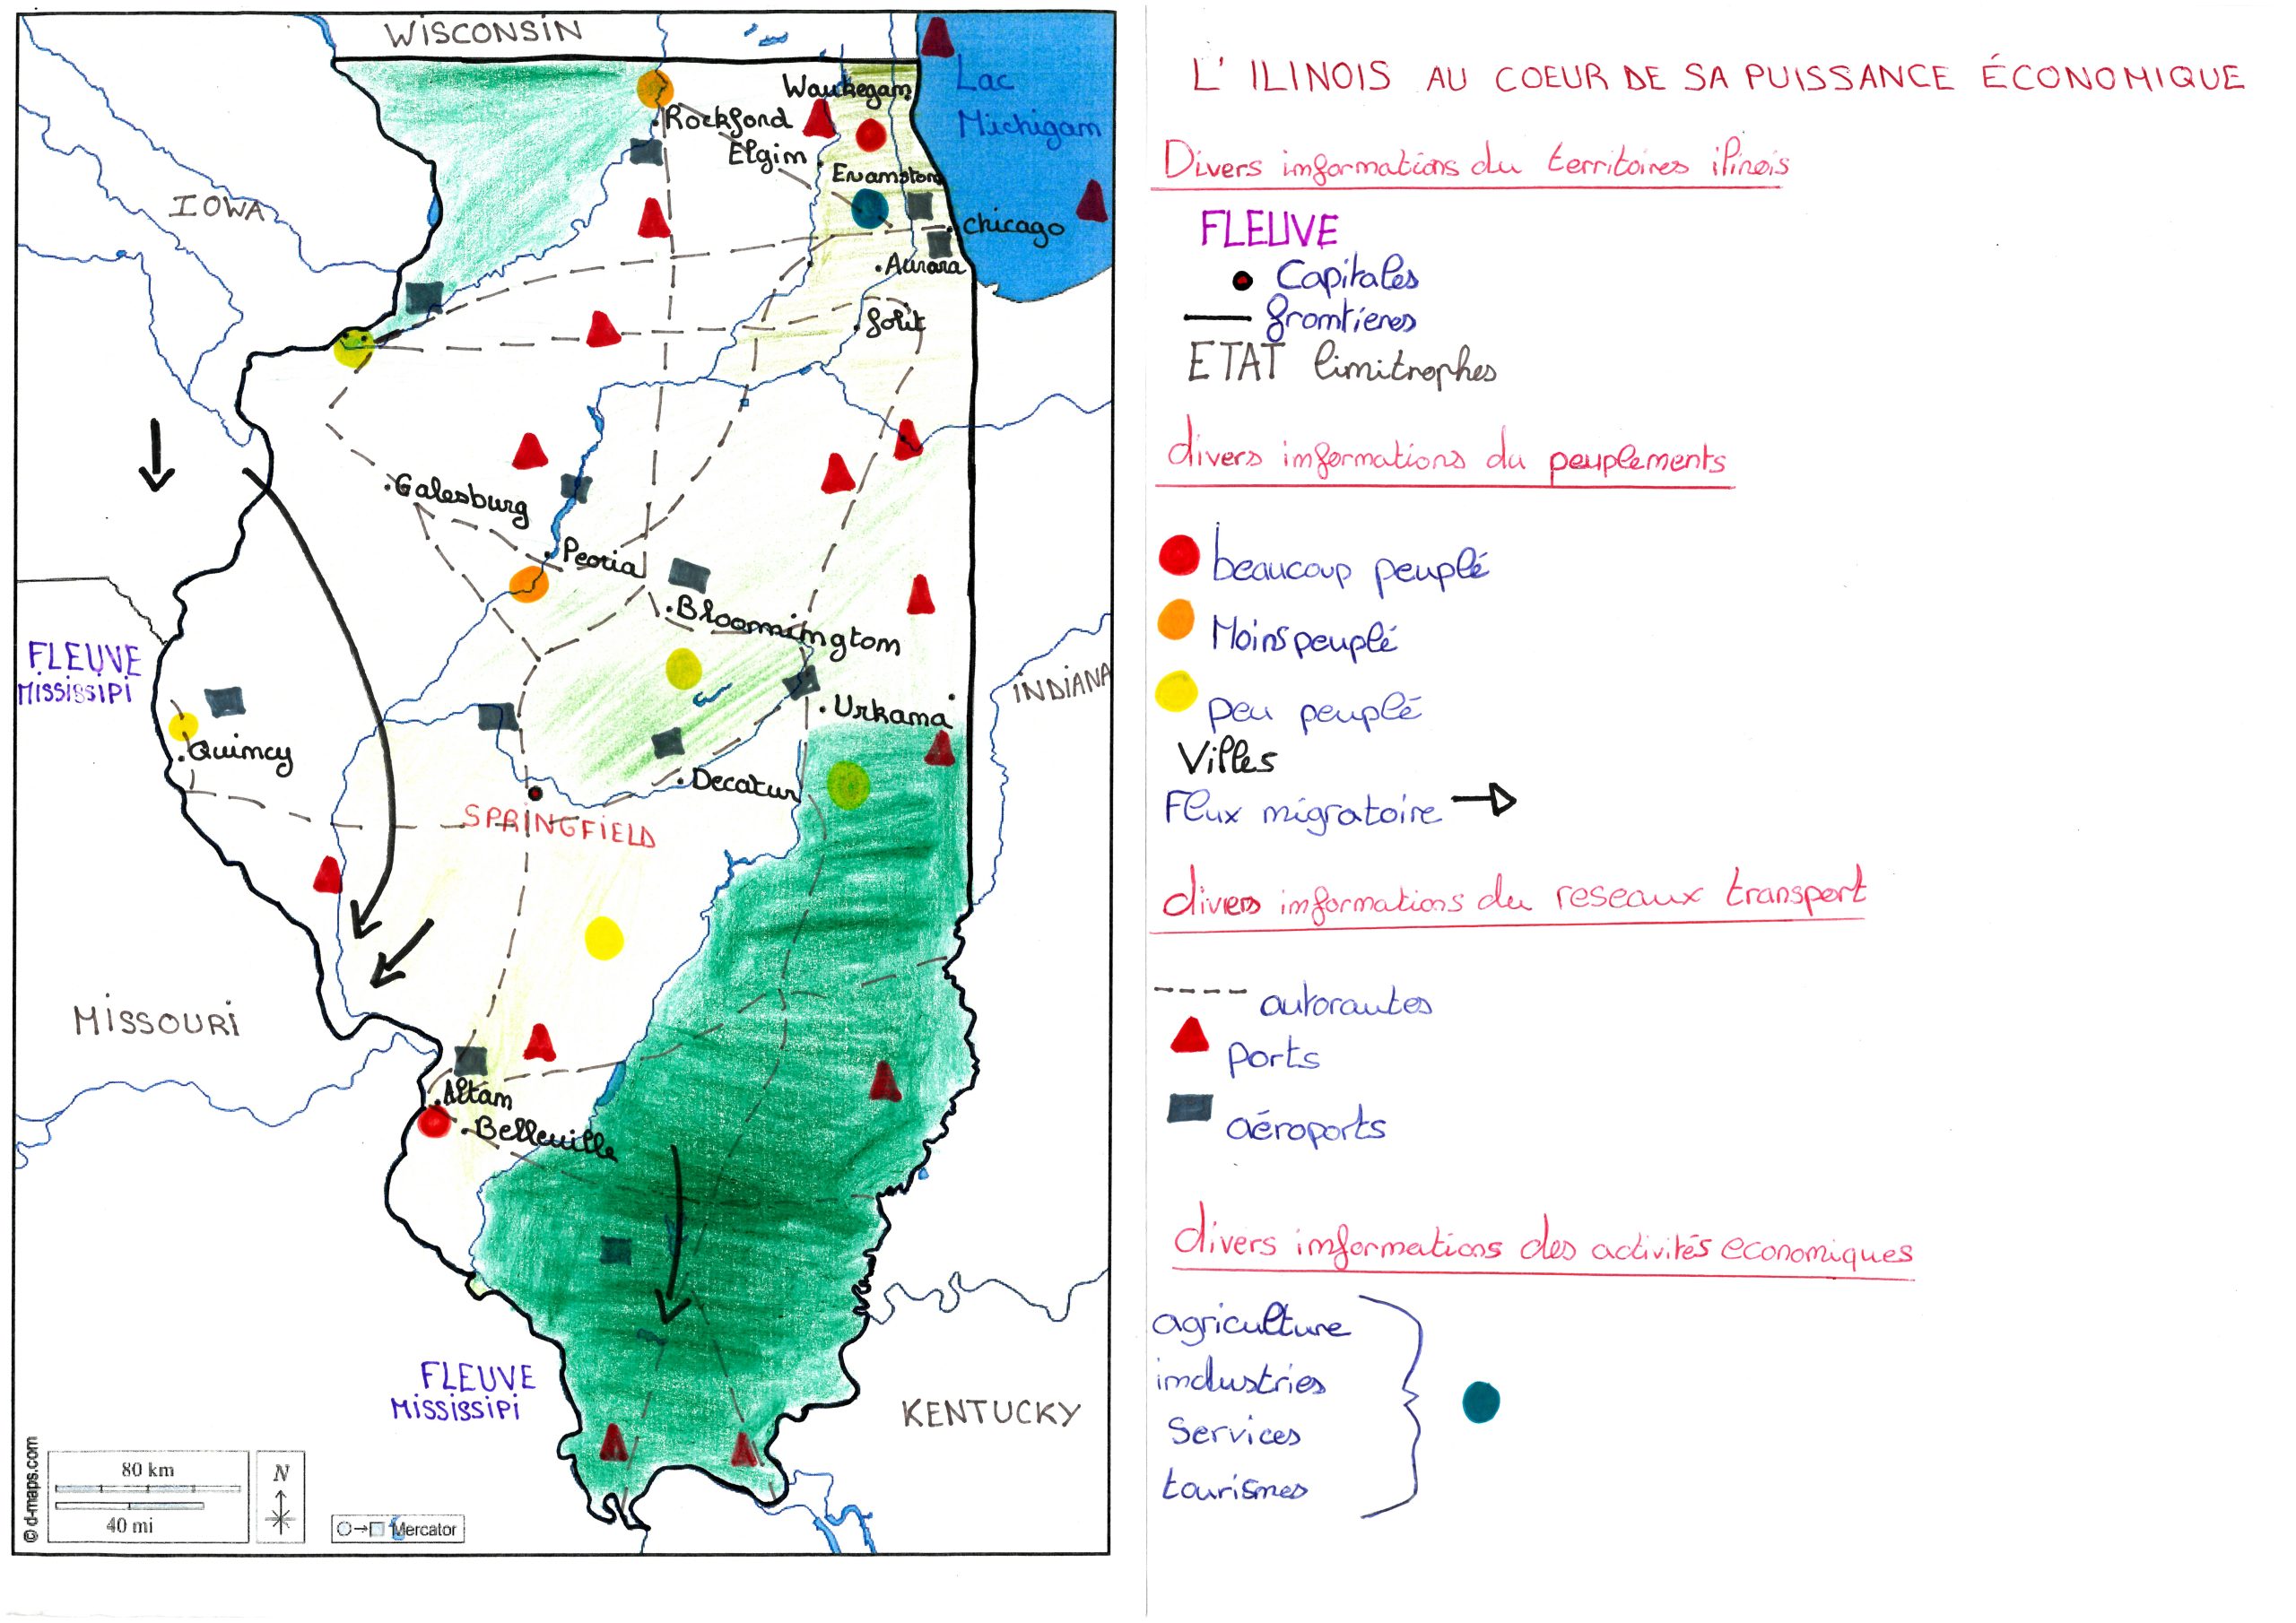 WISCONSIN
Lac
Michigam
Waukegam
Rockford
Elgim
Evamston
IOWA
chicago
Aurora
Solit
Galesburg
Peoria
Bloomimgtom
FLEUVE
MISSISSIPI
INDIANA
Urkama
Quimcy
Decatur
SPRINGFIELD
MISSOURI
Altam
Belleville
FLEUVE
MISSISSIPI
KENTUCKY
© d-maps.com
80 km
40 mi
N
Mercator
L' ILINOIS AU COEUR DE SA PUISSANCE ÉCONOMIQUE
Divers imformations du territoires ilinois
FLEUVE
Capitales
fromtieres
ETAT limitrophes
divers imformations du peuplements
beaucoup peuplé
Moins peuplé
peu peuplé
Villes
Flux migratoire
divers imformations du reseaux transport
autoroutes
ports
aéroports
divers imformations des activités economiques
agriculture
imdustries
Services
tourismes